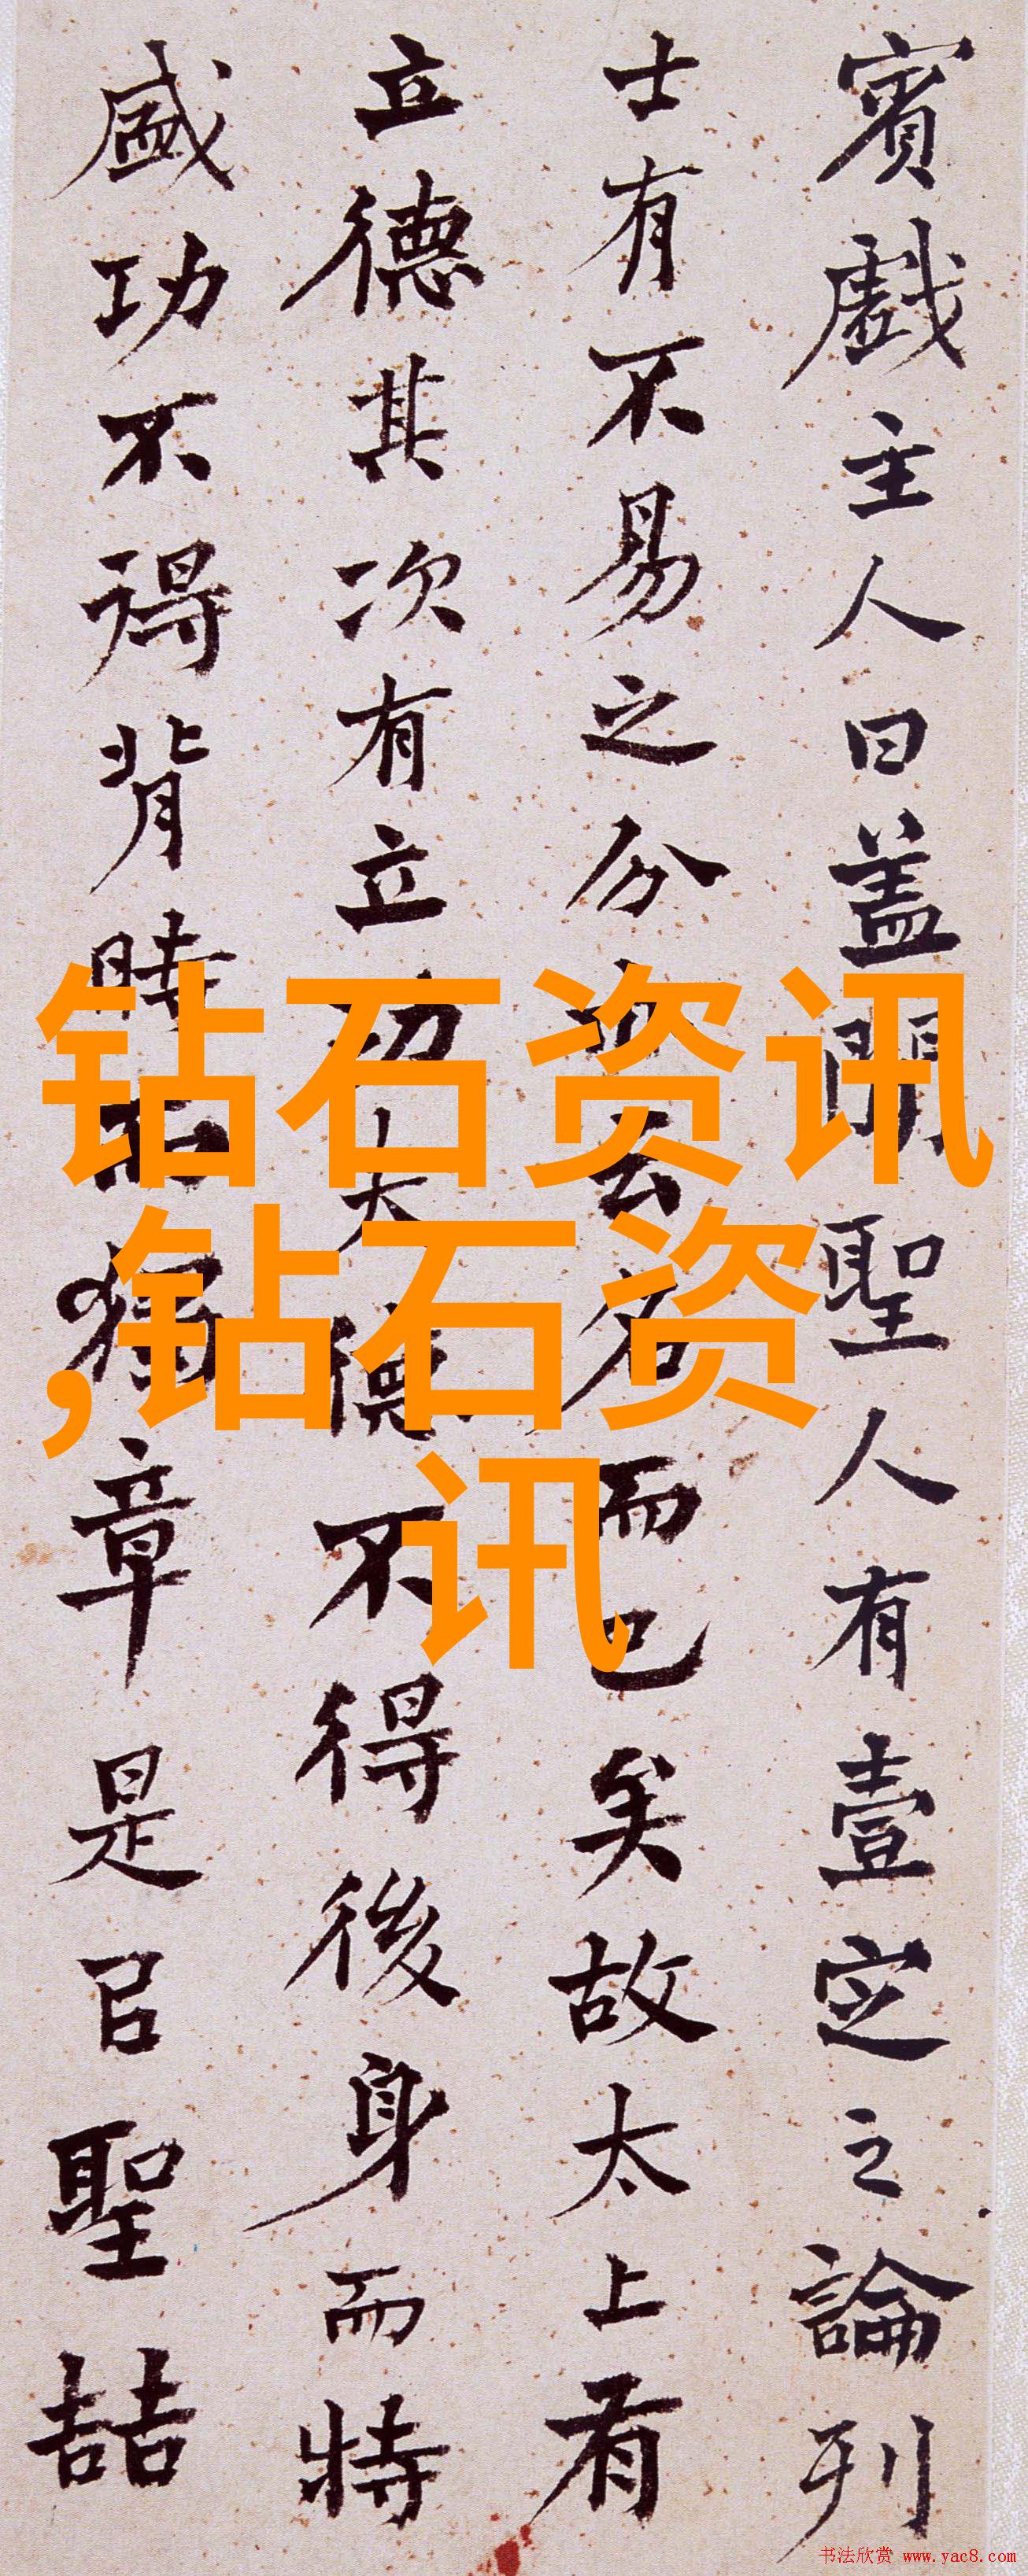 賓戲主人曰盖聞聖人有壹定之論列
士有不易之分亦云名而已矣故太上有
立德其次有立功夫德不得後身而特
盛功不得背時而獨章是以聖喆
钻石资讯
,钻石资
讯
书法欣赏 www.yac8.com